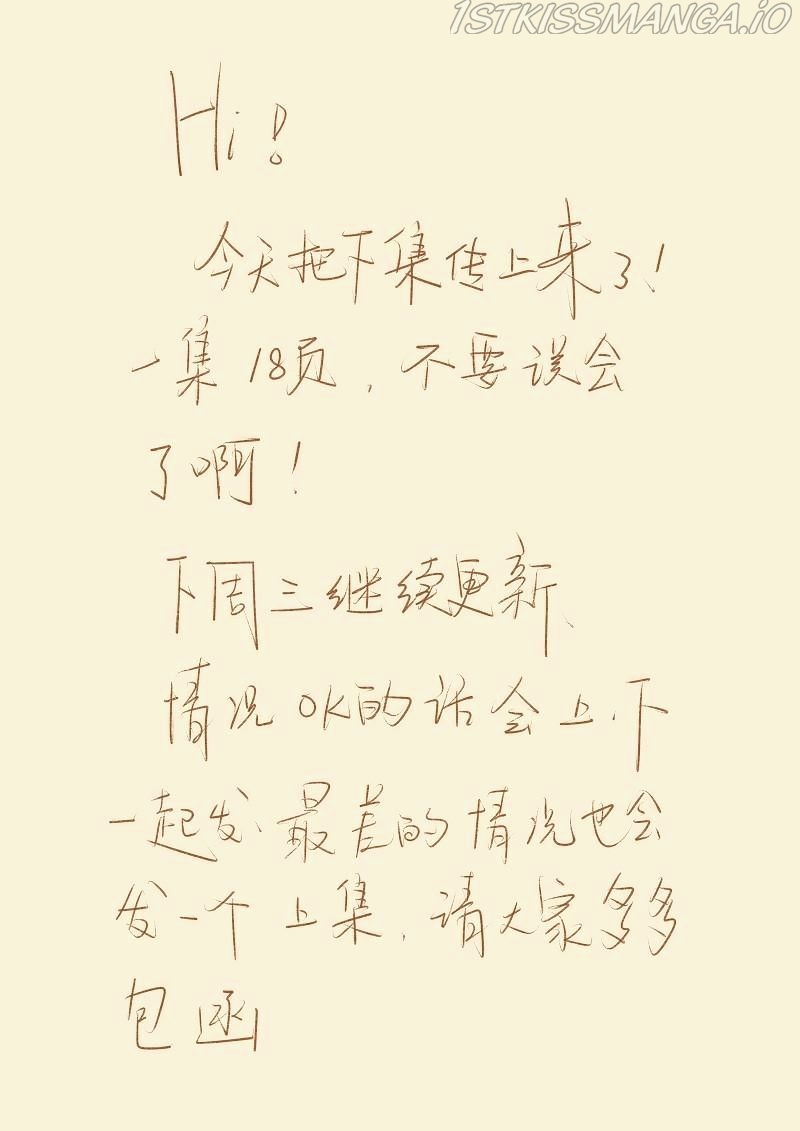 1STKISSMANGA.iO
Hi!
今天把下集传上来了!
一集18页,不要误会
了啊!
下周三继续更新、
情况OK的话会上、下
一起发、最差的情况也会
发一个上集,请大家多多
包涵